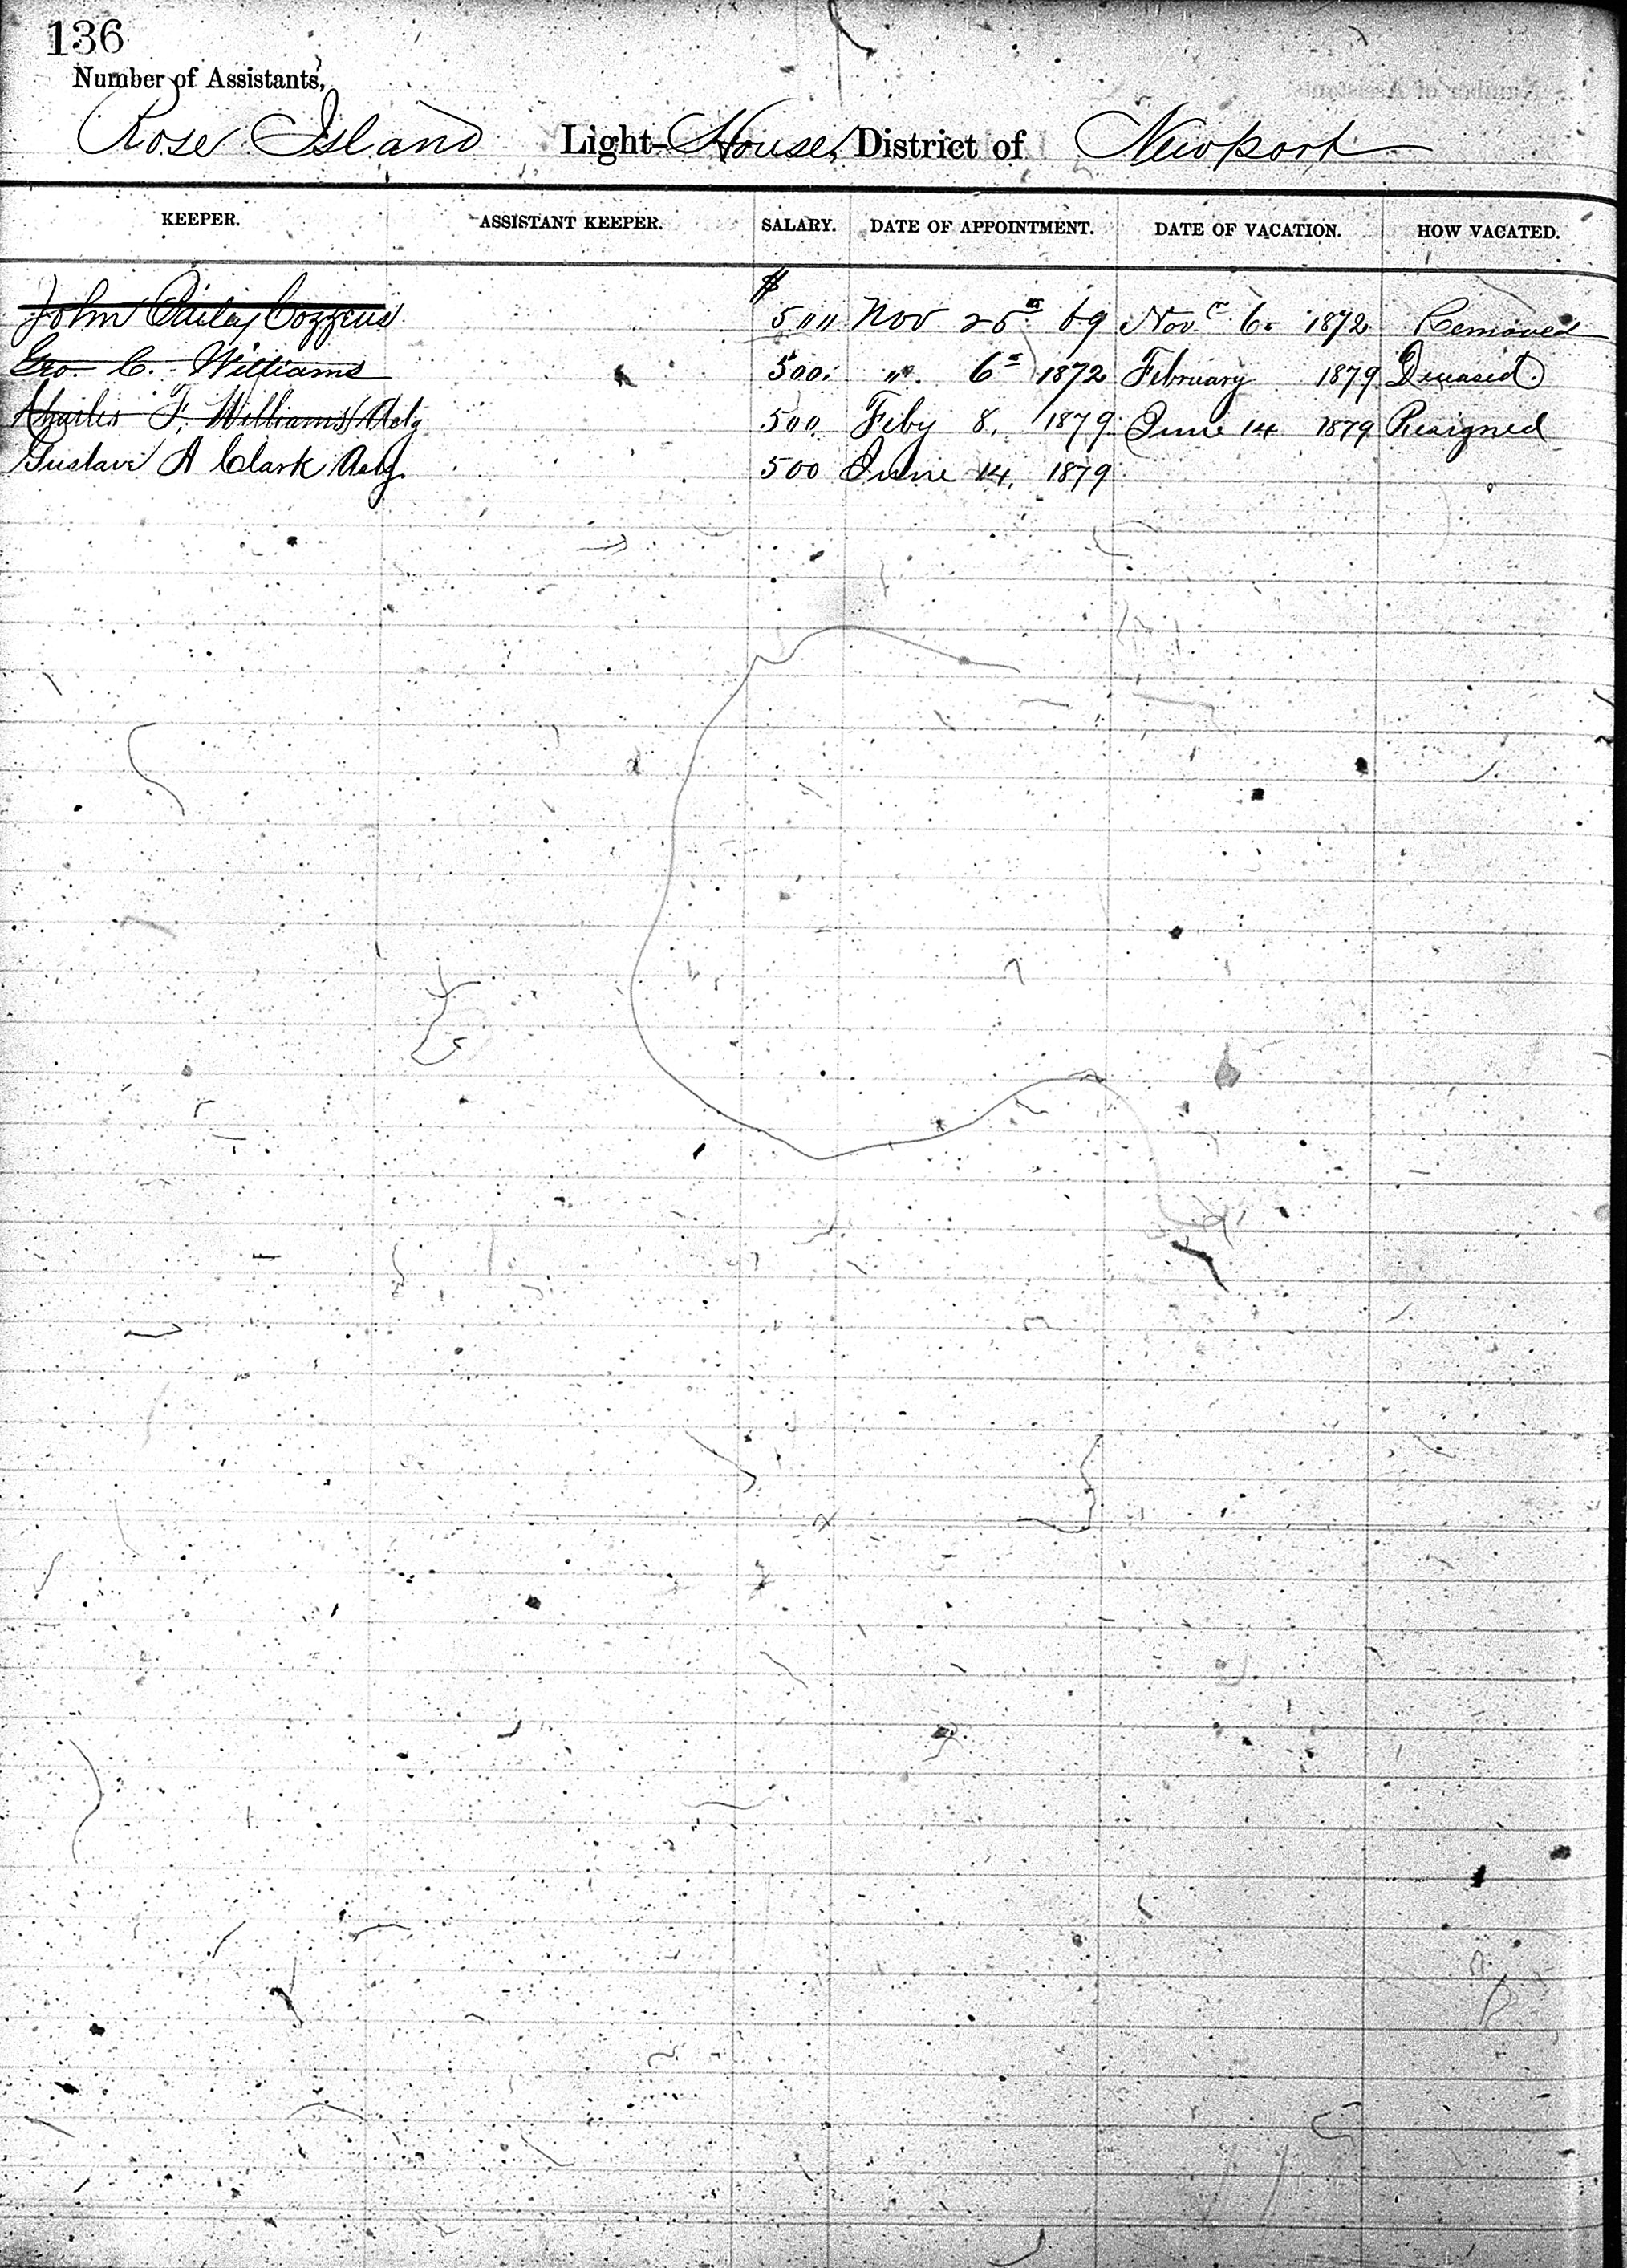 136
Number of Assistants,
Rose Island Light-House, District of Newport
KEEPER. ASSISTANT KEEPER. SALARY. DATE OF APPOINTMENT. DATE OF VACATION. HOW VACATED.
$
John Bailey Cozzens 5"" Nov 25th 69 Novr 6. 1872 Removed
Geo. C. Williams 500. ". 6th 1872 February 1879 Deceased.
Charles F. Williams Actg 5"" Feby 8. 1879. June 14 1879 Resigned
Gustave A Clark Actg. 500 June 14. 1879